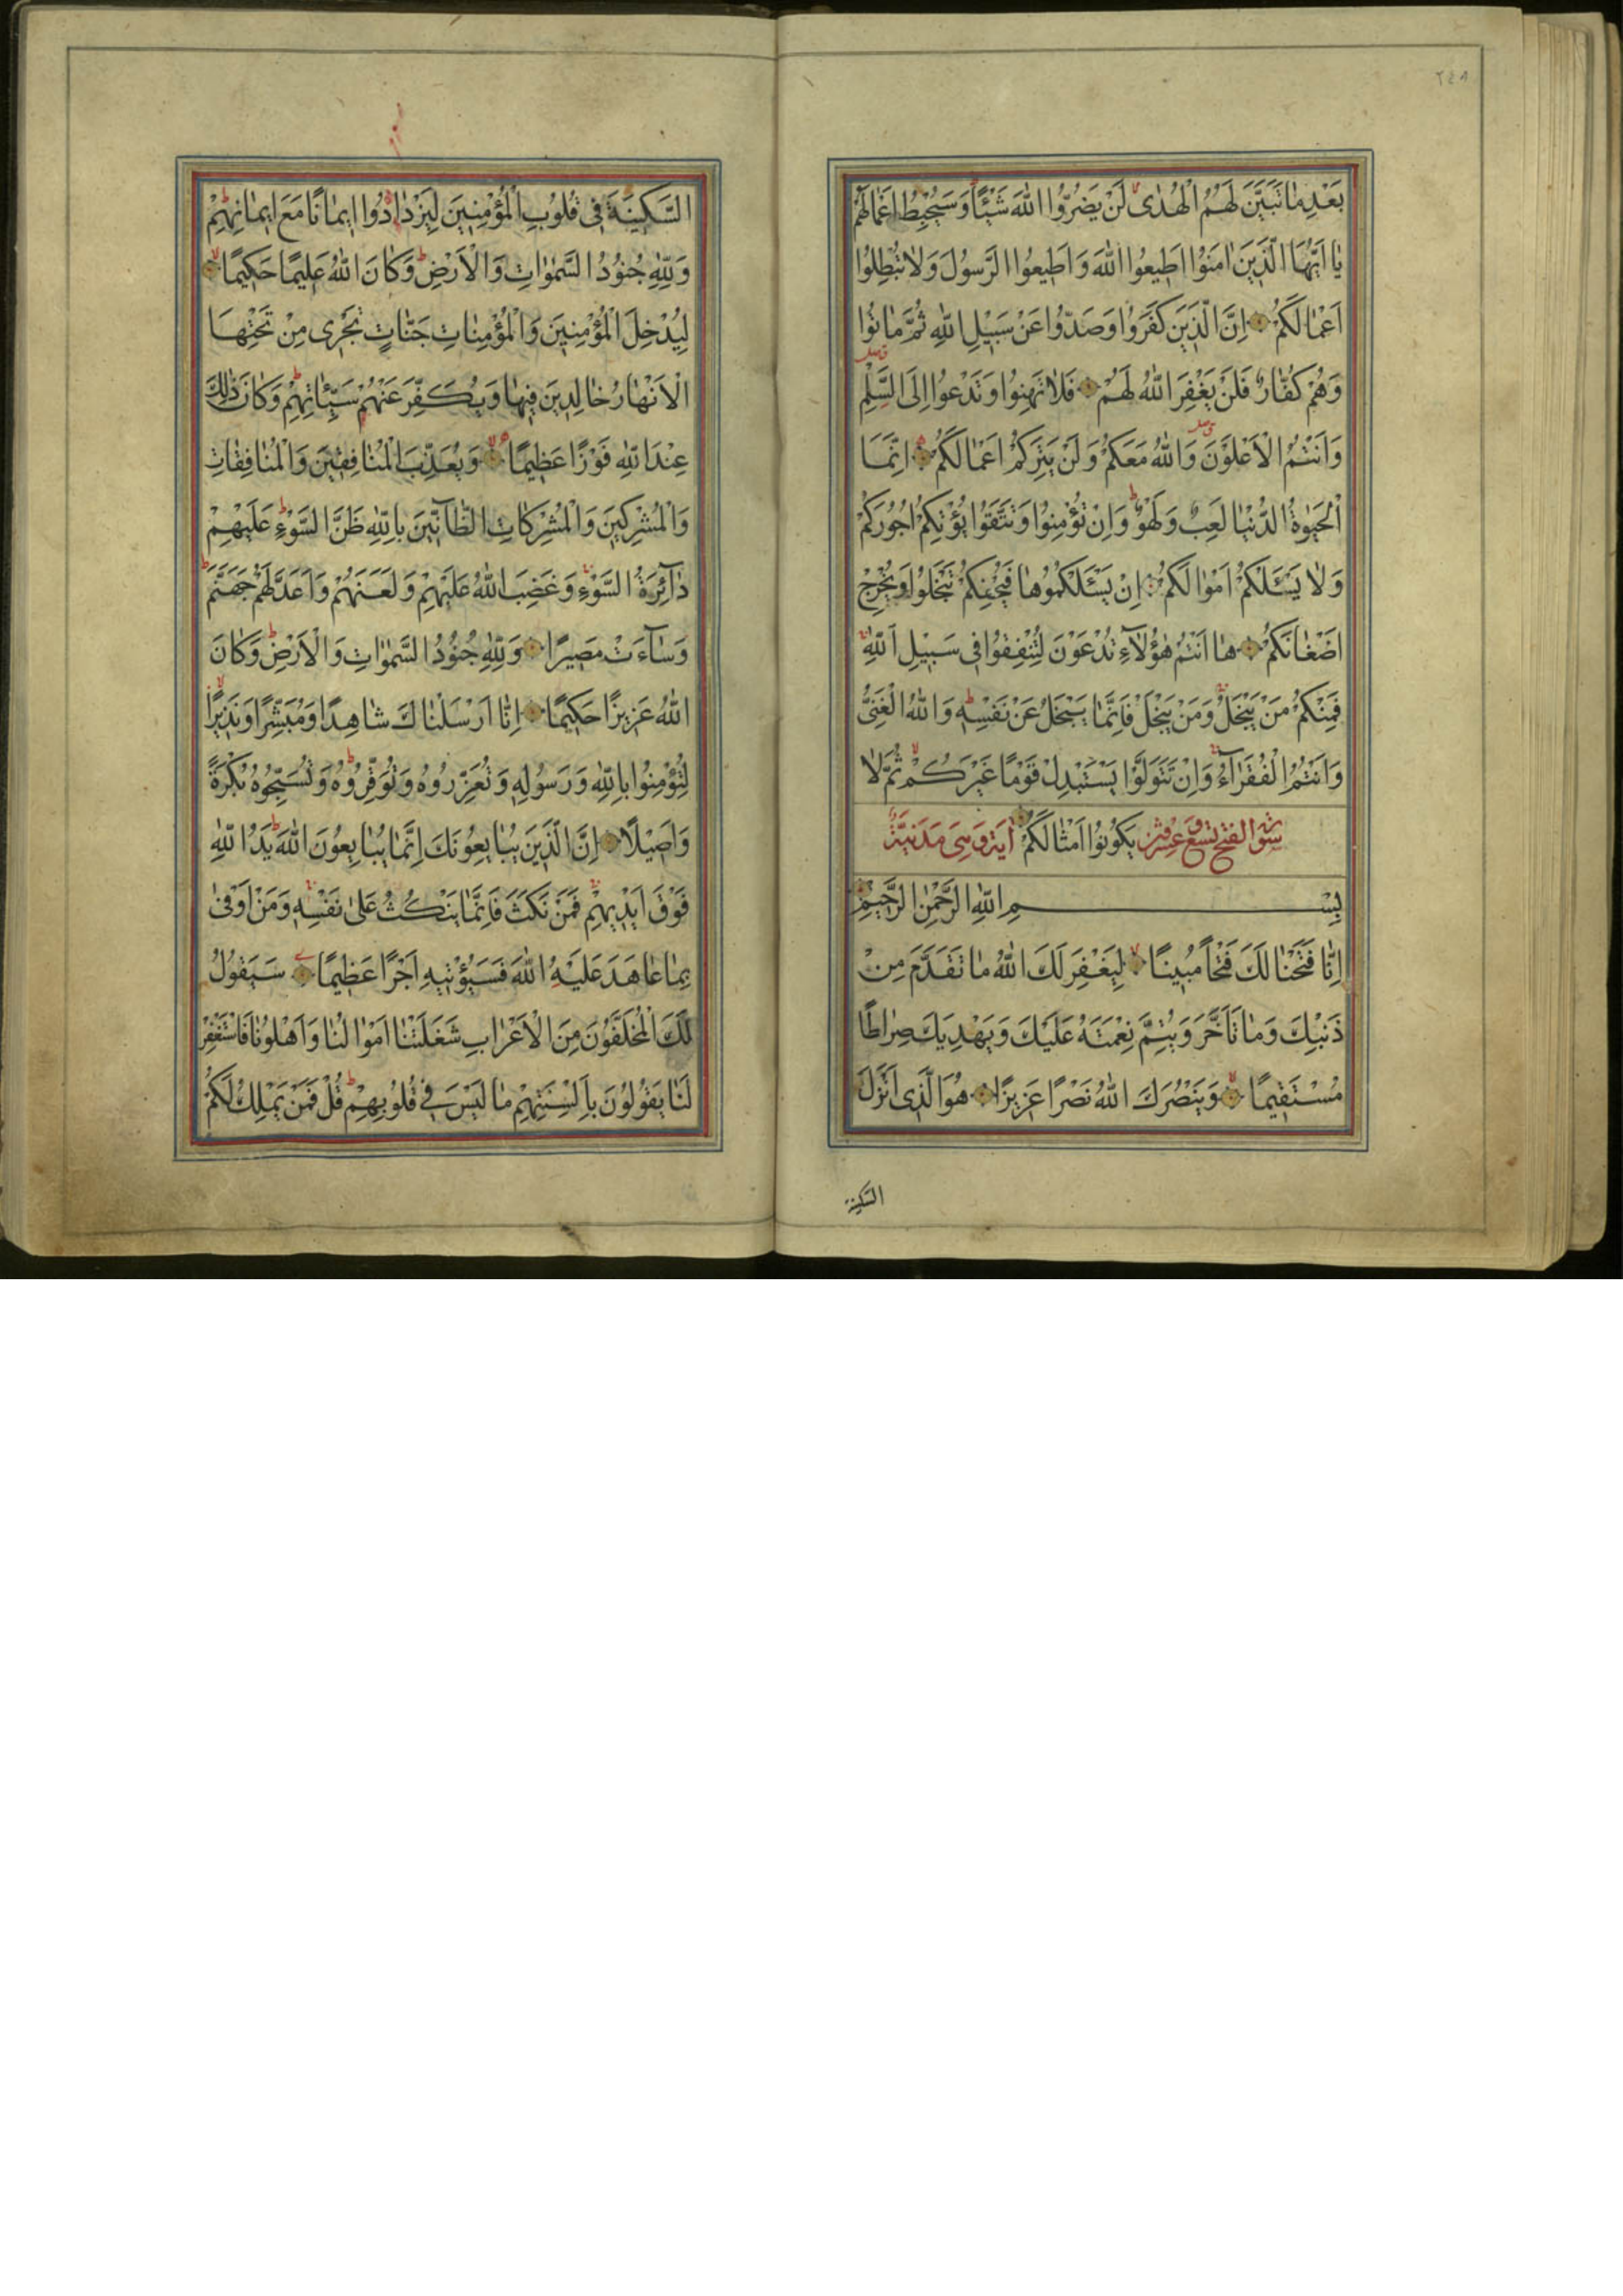 ٢٤٨
بَعْدِ مَا تَبَيَّنَ لَهُمُ الْهُدٰى لَنْ يَضُرُّوا اللّٰهَ شَيْئًا وَسَيُحْبِطُ اَعْمَالَهُمْ
يَا اَيُّهَا الَّذِينَ اٰمَنُوا اَطِيعُوا اللّٰهَ وَاَطِيعُوا الرَّسُولَ وَلَا تُبْطِلُوا
اَعْمَالَكُمْ اِنَّ الَّذِينَ كَفَرُوا وَصَدُّوا عَنْ سَبِيلِ اللّٰهِ ثُمَّ مَاتُوا
وَهُمْ كُفَّارٌ فَلَنْ يَغْفِرَ اللّٰهُ لَهُمْ فَلَا تَهِنُوا وَتَدْعُوا اِلَى السَّلْمِ
وَاَنْتُمُ الْاَعْلَوْنَ وَاللّٰهُ مَعَكُمْ وَلَنْ يَتِرَكُمْ اَعْمَالَكُمْ اِنَّمَا
الْحَيٰوةُ الدُّنْيَا لَعِبٌ وَلَهْوٌ وَاِنْ تُؤْمِنُوا وَتَتَّقُوا يُؤْتِكُمْ اُجُورَكُمْ
وَلَا يَسْـَٔلْكُمْ اَمْوَالَكُمْ اِنْ يَسْـَٔلْكُمُوهَا فَيُحْفِكُمْ تَبْخَلُوا وَيُخْرِجْ
اَضْغَانَكُمْ هَا اَنْتُمْ هٰؤُلَآءِ تُدْعَوْنَ لِتُنْفِقُوا فِي سَبِيلِ اللّٰهِ
فَمِنْكُمْ مَنْ يَبْخَلُ وَمَنْ يَبْخَلْ فَاِنَّمَا يَبْخَلُ عَنْ نَفْسِهِ وَاللّٰهُ الْغَنِيُّ
وَاَنْتُمُ الْفُقَرَآءُ وَاِنْ تَتَوَلَّوْا يَسْتَبْدِلْ قَوْمًا غَيْرَكُمْ ثُمَّ لَا
سورة الفتح تسع وعشرون يَكُونُوا اَمْثَالَكُمْ اية وهى مدنية
بِسْمِ اللّٰهِ الرَّحْمٰنِ الرَّحِيمِ
اِنَّا فَتَحْنَا لَكَ فَتْحًا مُبِينًا لِيَغْفِرَ لَكَ اللّٰهُ مَا تَقَدَّمَ مِنْ
ذَنْبِكَ وَمَا تَاَخَّرَ وَيُتِمَّ نِعْمَتَهُ عَلَيْكَ وَيَهْدِيَكَ صِرَاطًا
مُسْتَقِيمًا وَيَنْصُرَكَ اللّٰهُ نَصْرًا عَزِيزًا هُوَ الَّذِي اَنْزَلَ
السكينة
السَّكِينَةَ فِي قُلُوبِ الْمُؤْمِنِينَ لِيَزْدَادُوا اِيمَانًا مَعَ اِيمَانِهِمْ
وَلِلّٰهِ جُنُودُ السَّمٰوَاتِ وَالْاَرْضِ وَكَانَ اللّٰهُ عَلِيمًا حَكِيمًا
لِيُدْخِلَ الْمُؤْمِنِينَ وَالْمُؤْمِنَاتِ جَنَّاتٍ تَجْرِي مِنْ تَحْتِهَا
الْاَنْهَارُ خَالِدِينَ فِيهَا وَيُكَفِّرَ عَنْهُمْ سَيِّئَاتِهِمْ وَكَانَ ذٰلِكَ
عِنْدَ اللّٰهِ فَوْزًا عَظِيمًا وَيُعَذِّبَ الْمُنَافِقِينَ وَالْمُنَافِقَاتِ
وَالْمُشْرِكِينَ وَالْمُشْرِكَاتِ الظَّآنِّينَ بِاللّٰهِ ظَنَّ السَّوْءِ عَلَيْهِمْ
دَآئِرَةُ السَّوْءِ وَغَضِبَ اللّٰهُ عَلَيْهِمْ وَلَعَنَهُمْ وَاَعَدَّ لَهُمْ جَهَنَّمَ
وَسَآءَتْ مَصِيرًا وَلِلّٰهِ جُنُودُ السَّمٰوَاتِ وَالْاَرْضِ وَكَانَ
اللّٰهُ عَزِيزًا حَكِيمًا اِنَّا اَرْسَلْنَاكَ شَاهِدًا وَمُبَشِّرًا وَنَذِيرًا
لِتُؤْمِنُوا بِاللّٰهِ وَرَسُولِهِ وَتُعَزِّرُوهُ وَتُوَقِّرُوهُ وَتُسَبِّحُوهُ بُكْرَةً
وَاَصِيلًا اِنَّ الَّذِينَ يُبَايِعُونَكَ اِنَّمَا يُبَايِعُونَ اللّٰهَ يَدُ اللّٰهِ
فَوْقَ اَيْدِيهِمْ فَمَنْ نَكَثَ فَاِنَّمَا يَنْكُثُ عَلٰى نَفْسِهِ وَمَنْ اَوْفٰى
بِمَا عَاهَدَ عَلَيْهُ اللّٰهَ فَسَيُؤْتِيهِ اَجْرًا عَظِيمًا سَيَقُولُ
لَكَ الْمُخَلَّفُونَ مِنَ الْاَعْرَابِ شَغَلَتْنَا اَمْوَالُنَا وَاَهْلُونَا فَاسْتَغْفِرْ
لَنَا يَقُولُونَ بِاَلْسِنَتِهِمْ مَا لَيْسَ فِي قُلُوبِهِمْ قُلْ فَمَنْ يَمْلِكُ لَكُمْ